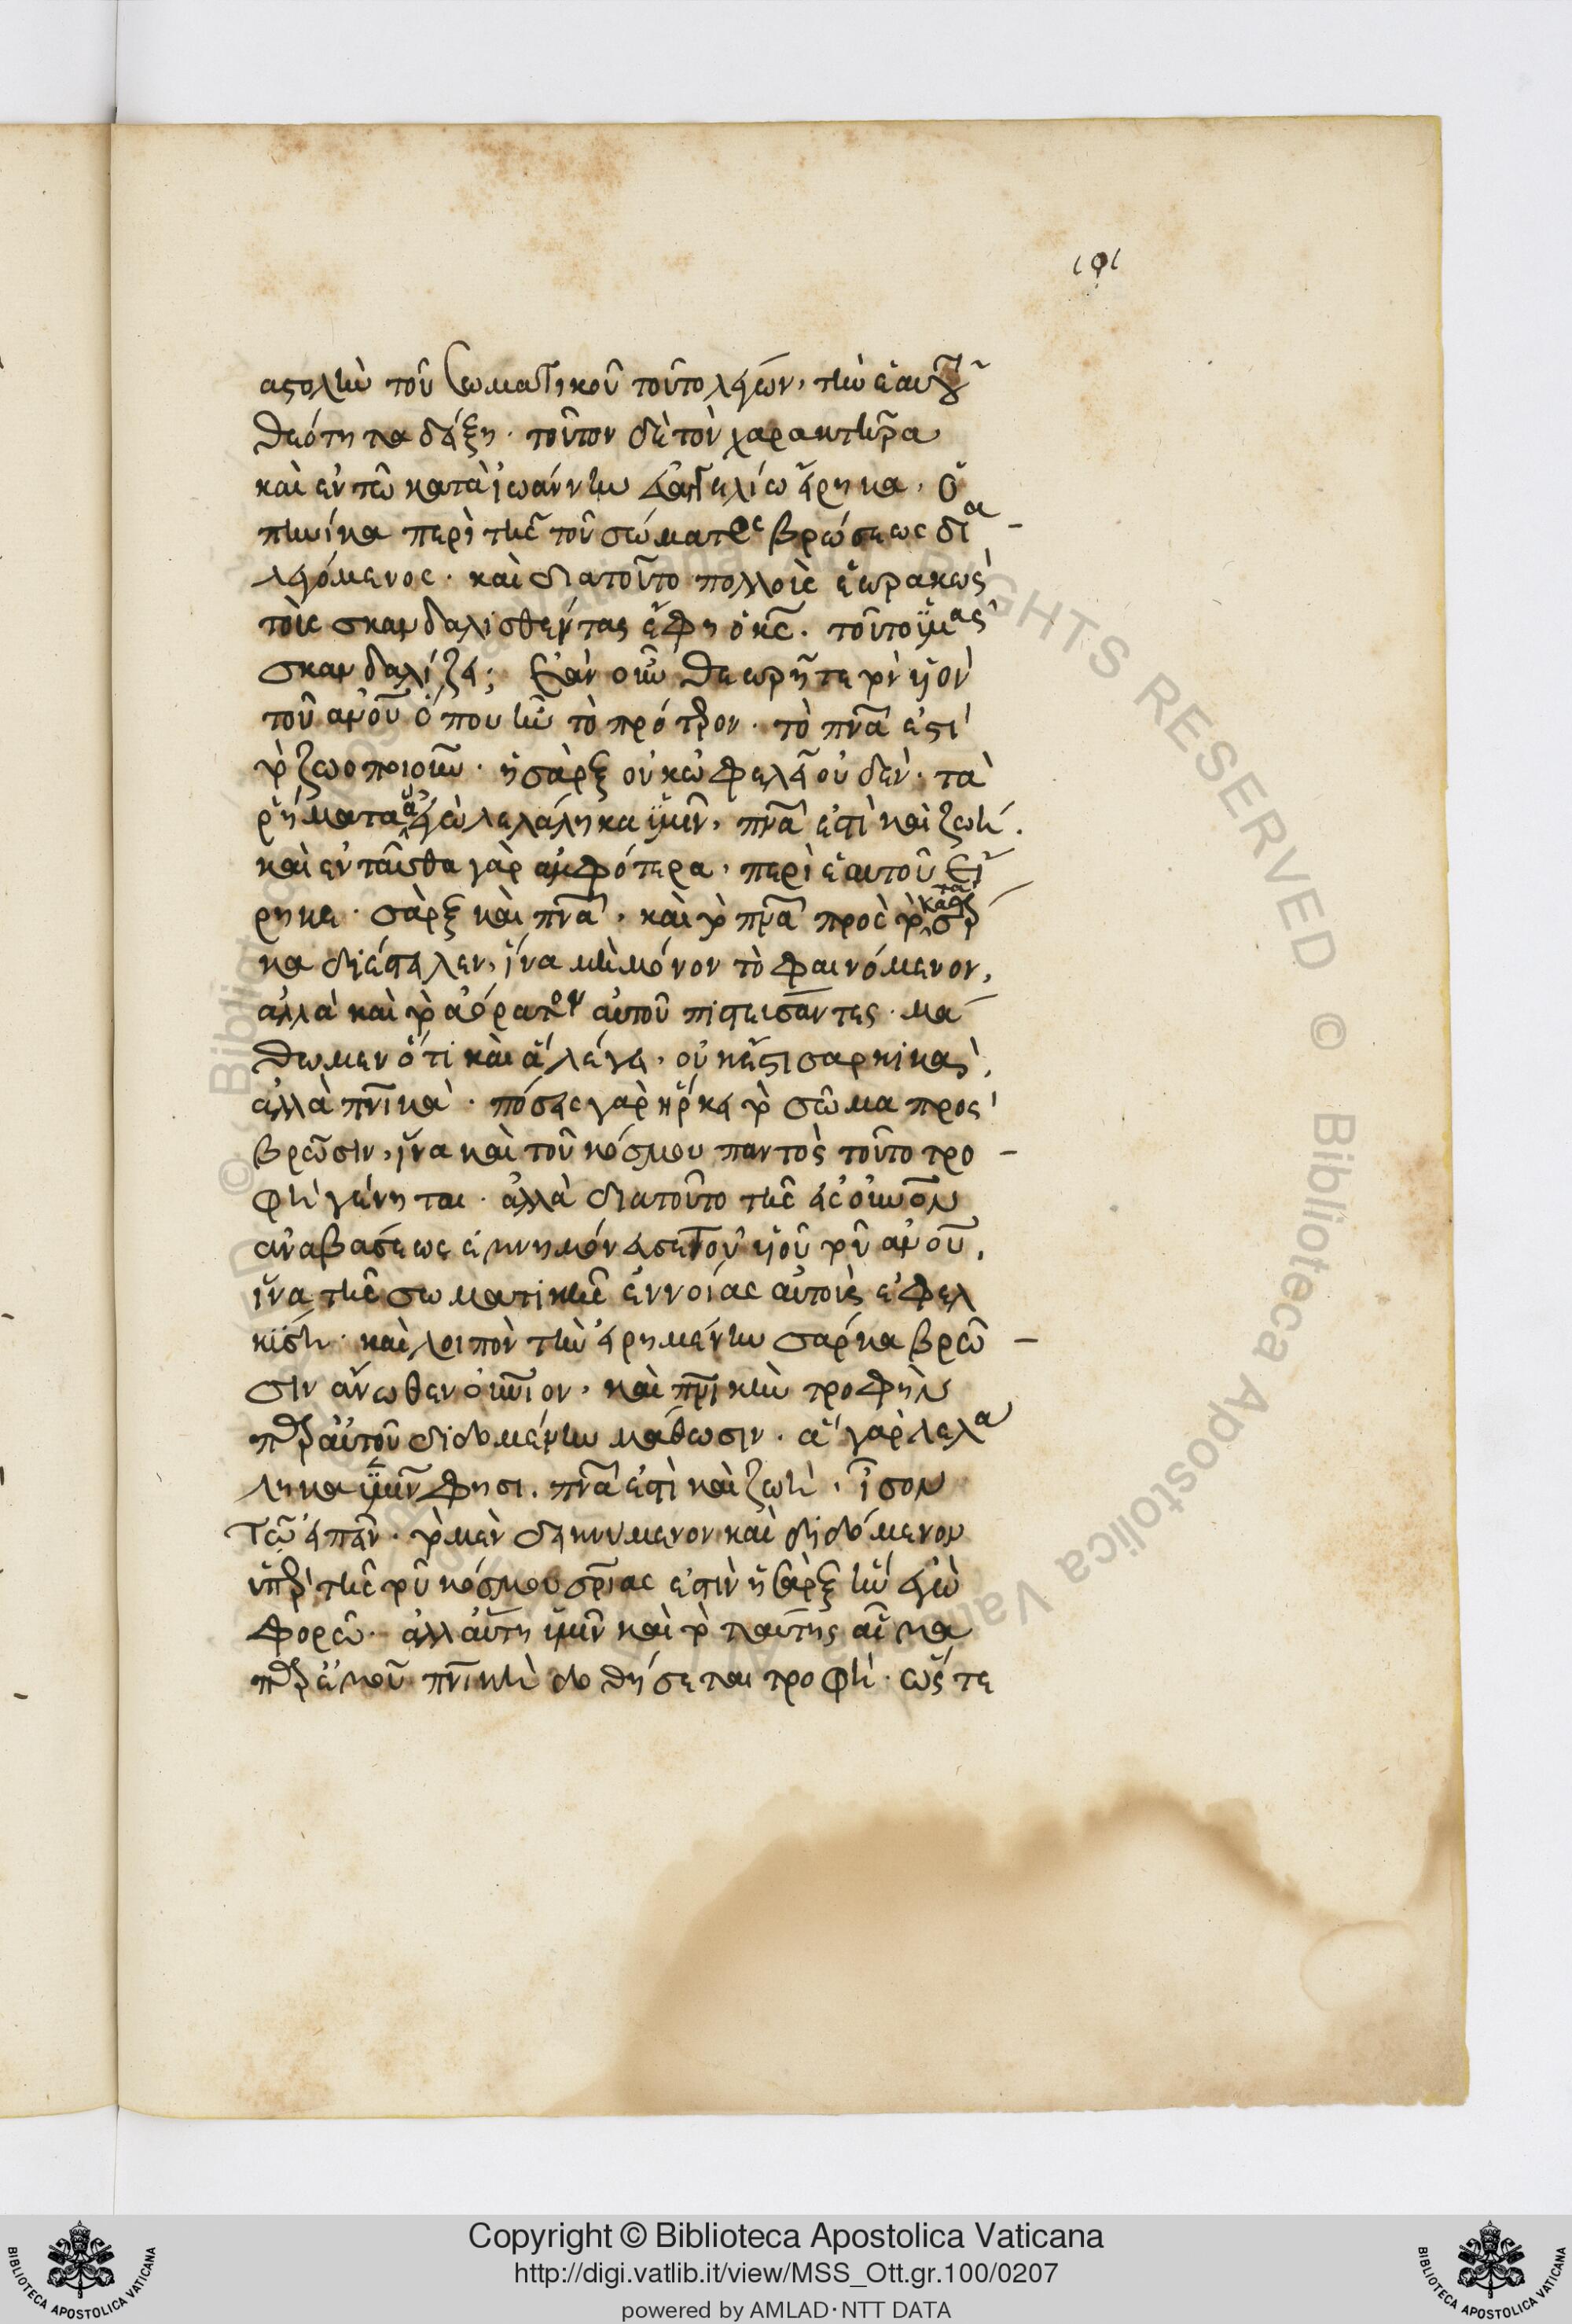 101
αστολὴν τοῦ σωματικοῦ τοῦτο λέγων, τὴν ἑαυτοῦ
θεότητα δείξῃ. τοῦτον δὲ τὸν χαρακτῆρα
καὶ ἐν τῷ κατὰ ἰωάννην εὐαγγελίῳ εἴρηκα. ὁ
πηνίκα περὶ τῆς τοῦ σώματος βρώσεως δια-
λεγόμενος. καὶ διατοῦτο πολλοὺς ἑωρακὼς
τοὺς σκανδαλισθέντας ἔφη ὁ κς. τοῦτο ὑμᾶς
σκανδαλίζει; ἐὰν οὖν θεωρῆτε τὸν υἱὸν
τοῦ ανου ὅπου ἦν τὸ πρότερον. τὸ πνα ἐστὶ
τὸ ζωοποιοῦν. ἡ σὰρξ οὐκ ὠφελεῖ οὐδέν. τὰ
ῥήματα ἃ ἐγὼ λελάληκα ὑμῖν, πνα ἐστὶ καὶ ζωή.
καὶ ἐνταῦθα γὰρ ἀμφότερα, περὶ ἑαυτοῦ εἴ
ρηκε. σὰρξ καὶ πνα. καὶ τὸ πνα πρὸς τὸ κατὰ σάρ
κα διέστειλεν, ἵνα μὴ μόνον τὸ φαινόμενον,
ἀλλὰ καὶ τὸ ἀόρατον αὐτοῦ πιστεύσαντες. μά
θωμεν ὅτι καὶ ἃ λέγει, οὐκ ἔστι σαρκικὰ,
ἀλλὰ πνικά. πόσοις γὰρ ἤρκει τὸ σῶμα πρὸς
βρῶσιν, ἵνα καὶ τοῦ κόσμου παντὸς τοῦτο τρο-
φὴ γένηται. ἀλλὰ διατοῦτο τῆς εἰς οὐνὸν
ἀναβάσεως ἐμνημόνευσε τοῦ υἱοῦ τοῦ ανου,
ἵνα τῆς σωματικῆς ἐννοίας αὐτοὺς ἀφελ
κύσῃ. καὶ λοιπὸν τὴν εἰρημένην σάρκα βρῶ-
σιν ἄνωθεν οὐνιον, καὶ πνικὴν τροφὴν
παρ' αὐτοῦ διδομένην μάθωσιν. ἃ γὰρ λελά
ληκα ὑμῖν φησι. πνα ἐστὶ καὶ ζωή. ἶσον
τῷ εἰπεῖν. τὸ μὲν δεικνύμενον καὶ διδόμενον
ὑπὲρ τῆς τοῦ κόσμου σριας ἐστὶν ἡ σὰρξ ἣν ἐγὼ
φορῶ. ἀλλ' αὕτη ὑμῖν καὶ τὸ ταύτης αἷμα
παρ' ἐμοῦ πνικὴ δοθήσεται τροφή. ὥστε
Copyright © Biblioteca Apostolica Vaticana
http://digi.vatlib.it/view/MSS_Ott.gr.100/0207
powered by AMLAD·NTT DATA